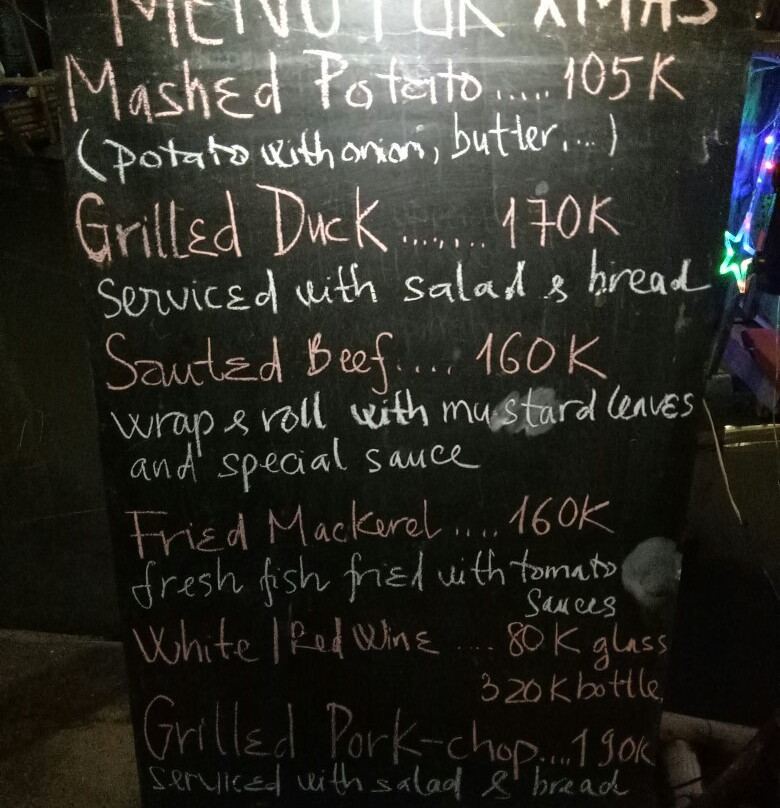 MENU FOR XMAS
Mashed Potato ..... 105K
(potato with onion, butter....)
Grilled Duck ........ 170K
serviced with salad & bread
Sauted Beef.... 160K
wrap & roll with mustard leaves
and special sauce
Fried Mackerel .... 160K
fresh fish fried with tomato
sauces
White / Red Wine .... 80K glass
320K bottle
Grilled Pork-chop....190K
serviced with salad & bread